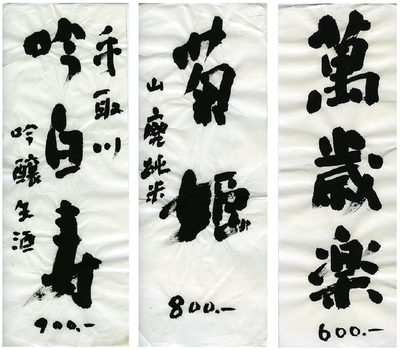 手取川
吟白寿
吟醸生酒
900.-
菊姫
山廃純米
800.-
萬歳楽
600.-